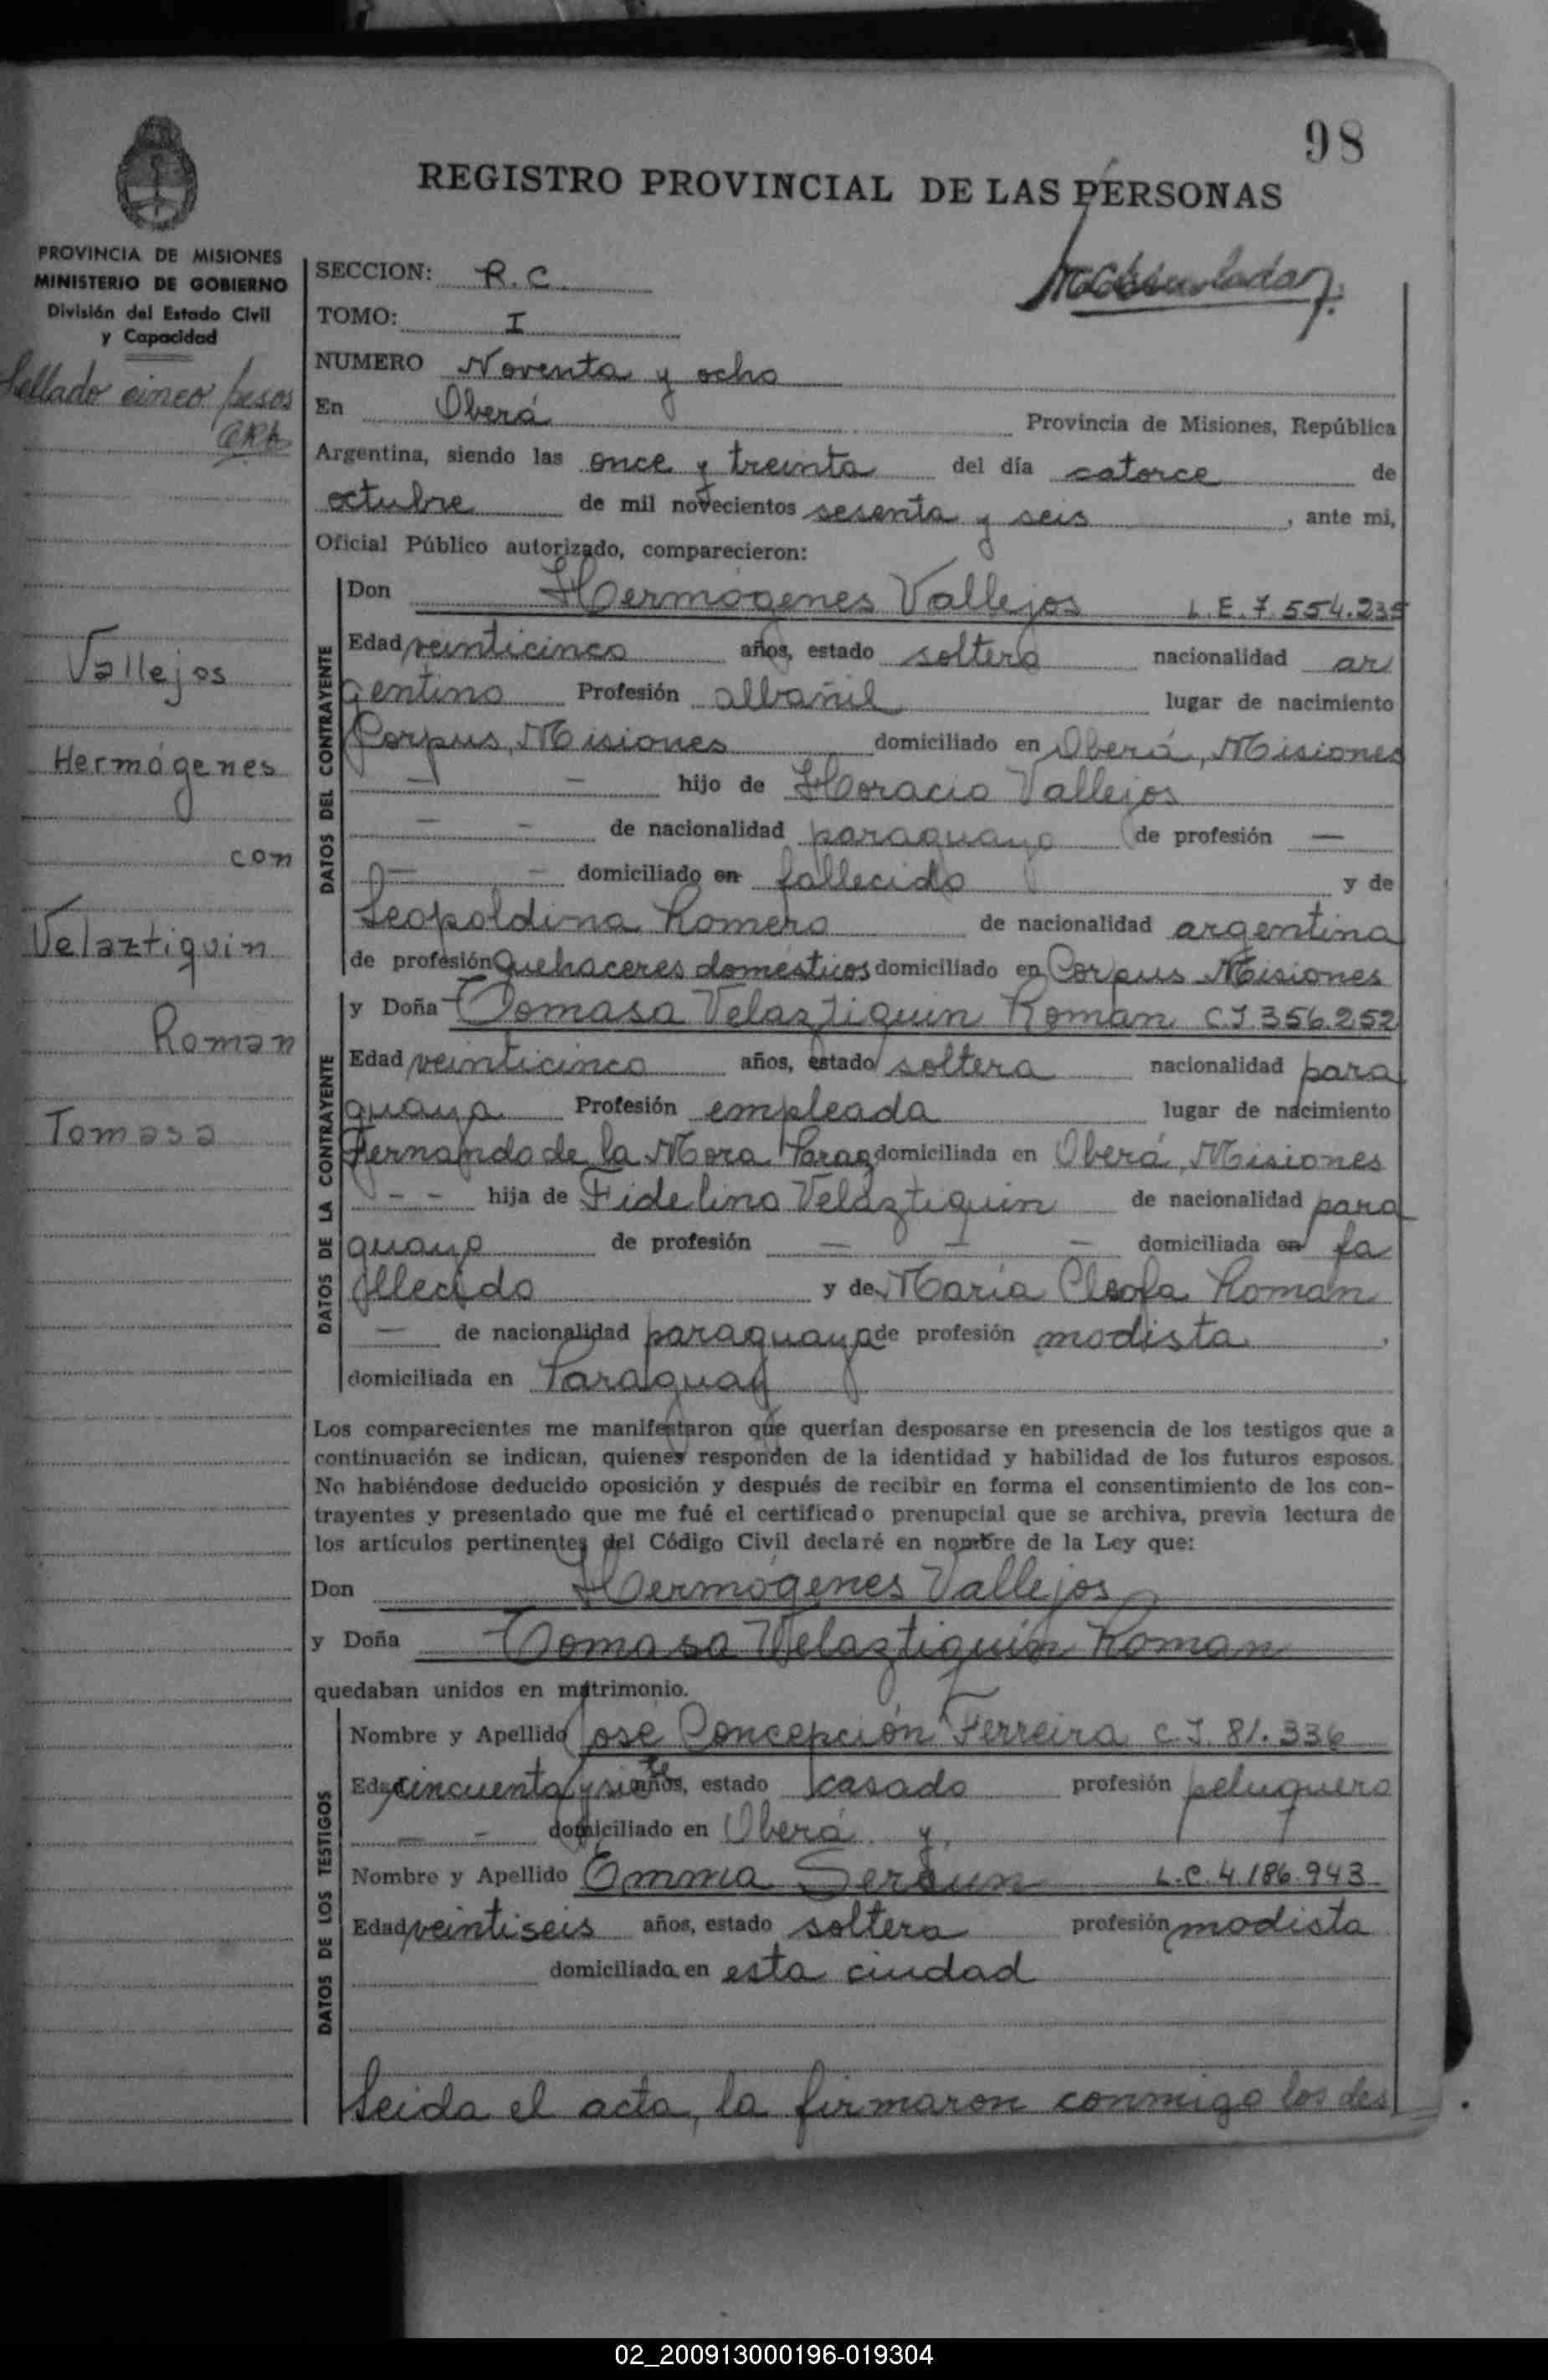 98
REGISTRO PROVINCIAL DE LAS PERSONAS
PROVINCIA DE MISIONES
MINISTERIO DE GOBIERNO
División del Estado Civil
y Capacidad
Sellado cinco pesos
Vallejos
Hermógenes
con
Velaztiquin
Roman
Tomasa
SECCION: R.C.
TOMO: I
NUMERO Noventa y ocho
En Oberá Provincia de Misiones, República
Argentina, siendo las once y treinta del día catorce de
octubre de mil novecientos sesenta y seis, ante mi,
Oficial Público autorizado, comparecieron:
DATOS DEL CONTRAYENTE
Don Hermógenes Vallejos L.E. 7.554.235
Edad veinticinco años, estado soltero nacionalidad ar
gentino Profesión albañil lugar de nacimiento
Corpus, Misiones domiciliado en Oberá, Misiones
— — hijo de Horacio Vallejos
— — de nacionalidad paraguayo de profesión —
— — domiciliado en fallecido y de
Leopoldina Romero de nacionalidad argentina
de profesión Quehaceres domésticos domiciliado en Corpus Misiones
DATOS DE LA CONTRAYENTE
y Doña Tomasa Velaztiquin Roman C.I 356.252
Edad veinticinco años, estado soltera nacionalidad para
guaya Profesión empleada lugar de nacimiento
Fernando de la Mora Parag domiciliada en Oberá, Misiones
— — hija de Fidelino Velaztiquin de nacionalidad para
guayo de profesión — — — domiciliada en fa
llecido y de María Cleofa Roman
— de nacionalidad paraguaya de profesión modista,
domiciliada en Paraguay
Los comparecientes me manifestaron que querían desposarse en presencia de los testigos que a
continuación se indican, quienes responden de la identidad y habilidad de los futuros esposos.
No habiéndose deducido oposición y después de recibir en forma el consentimiento de los con-
trayentes y presentado que me fué el certificado prenupcial que se archiva, previa lectura de
los artículos pertinentes del Código Civil declaré en nombre de la Ley que:
Don Hermógenes Vallejos
y Doña Tomasa Velaztiquin Roman
quedaban unidos en matrimonio.
DATOS DE LOS TESTIGOS
Nombre y Apellido José Concepción Ferreira C.I. 81.336
Edad cincuenta y siete años, estado casado profesión peluquero
— — domiciliado en Oberá y
Nombre y Apellido Emma L.C. 4.186.943
Edad veintiseis años, estado soltera profesión modista
domiciliada en esta ciudad
Leida el acta, la firmaron conmigo los des
02_200913000196-019304